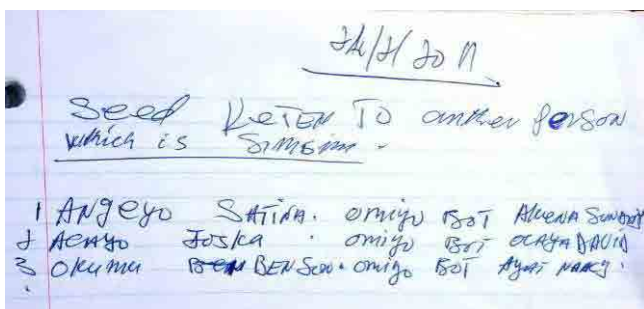 Seed KETEN TO another person
which is SIMSIM.
1 ANgeyo SATINA. omiyo BOT AKENA SUNDAY
2 ACAYO JOSKA. omiyo BOT OCAYA DAVID
3 Okumu BENSON. omiyo BOT Ayat NANCY.